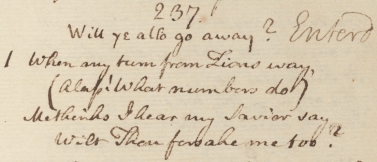 237
Will ye also go away? Enterd
1 When any turn from Zions way,
(Alas! What numbers do)
Methinks I hear my Savior say
Wilt Thou forsake me too?